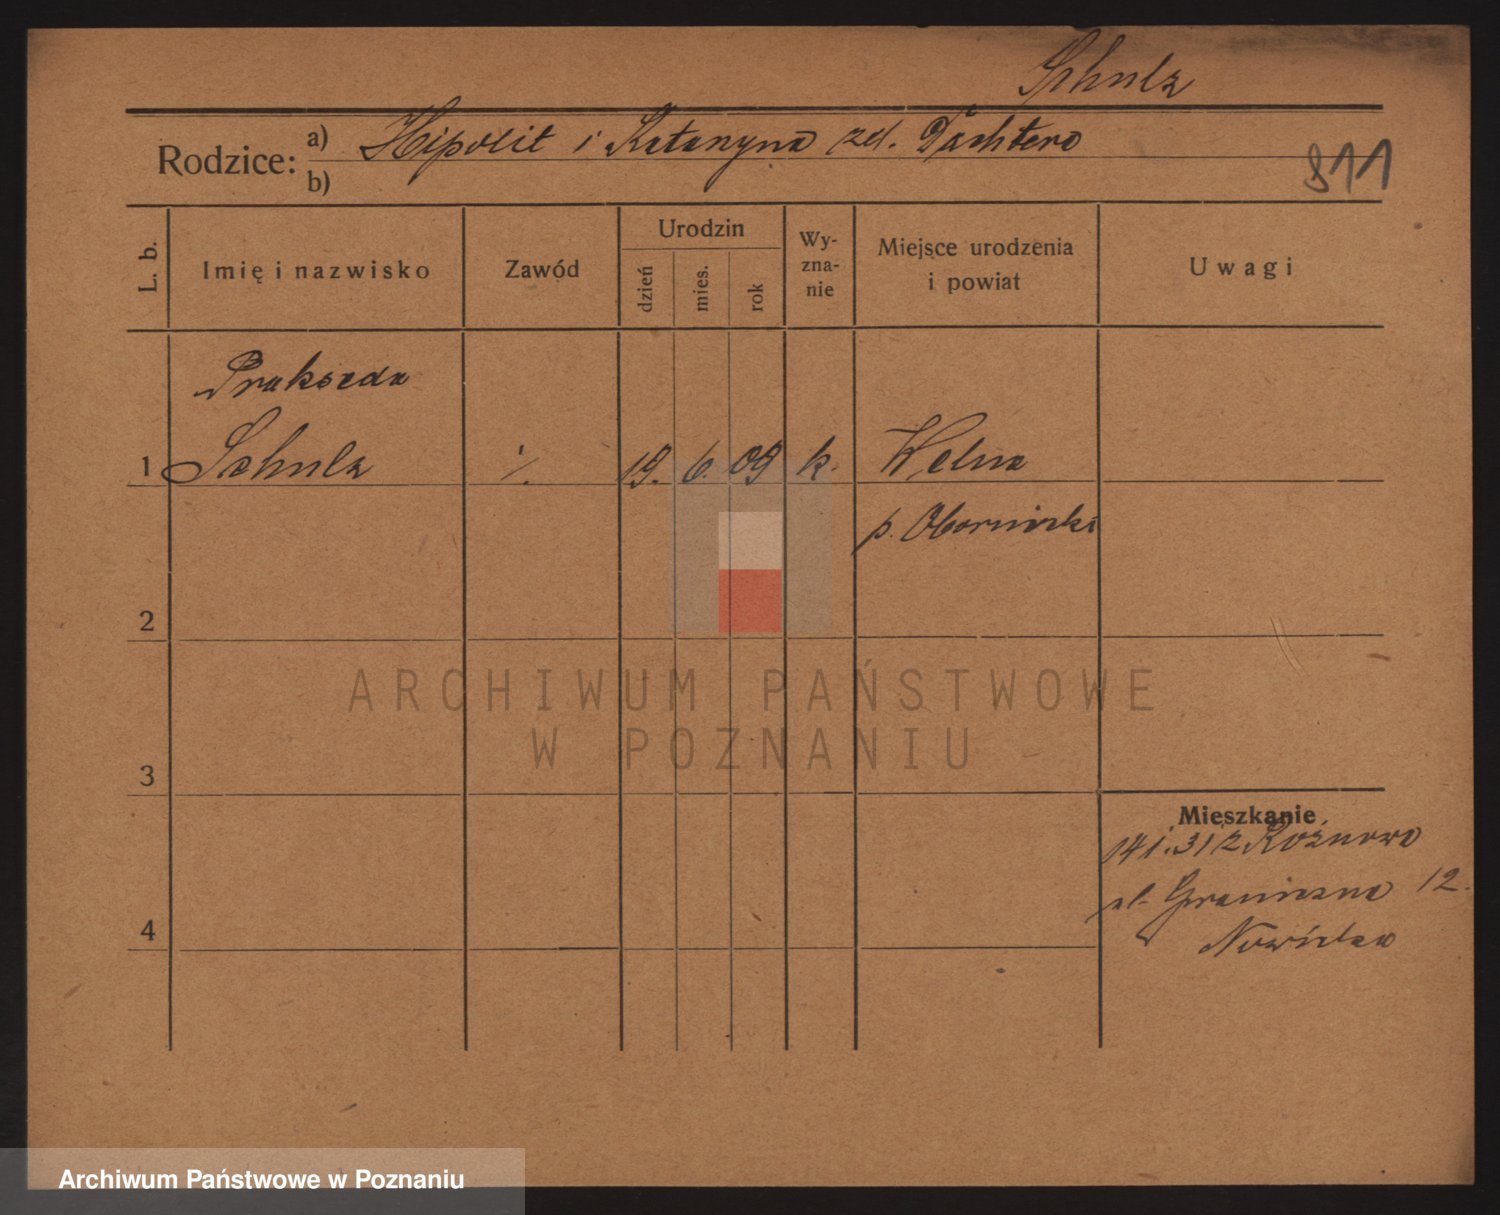 Schulz
Rodzice: a) Hipolit i Katarzyna zd. Pachtero
b)
811
L. b.
Imię i nazwisko
Zawód
Urodzin
dzień
mies.
rok
Wy-
zna-
nie
Miejsce urodzenia
i powiat
Uwagi
Prakseda
1 Schulz ·/. 19. 6. 09 k. Wełna
p. Obornicki
2
3
4
Mieszkanie
14 i. 31 z Rożnowo
ul. Graniczna 12.
ARCHIWUM PAŃSTWOWE
W POZNANIU
Archiwum Państwowe w Poznaniu